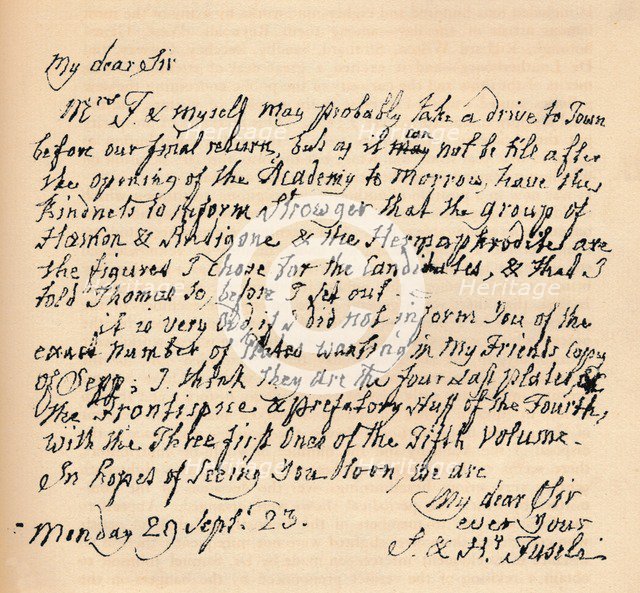 My dear Sir
Mrs F & myself may probably take a drive to Town
before our final return, but as it may can not be till after
the opening of the Academy to Morrow, have the
Kindness to inform Strowger that the group of
Hæmon & Antigone & the Hermaphrodite are
the figures I chose for the Candidates, & that I
told Thomas so, before I set out
it is very odd, if I did not inform You of the
exact number of Plates wanting in My Friends Copy
of Sepp: I think they are the four Last plates,
the Frontispice & prefatory stuff of the Fourth,
with the Three first Ones of the Fifth Volume.
In hopes of Seeing You Soon, we are
My dear Sir
ever Yours
S. & Hy Fuseli
Monday 29 Sept. 23.
Heritage
Heritage
Heritage
Heritage
Heritage
Heritage